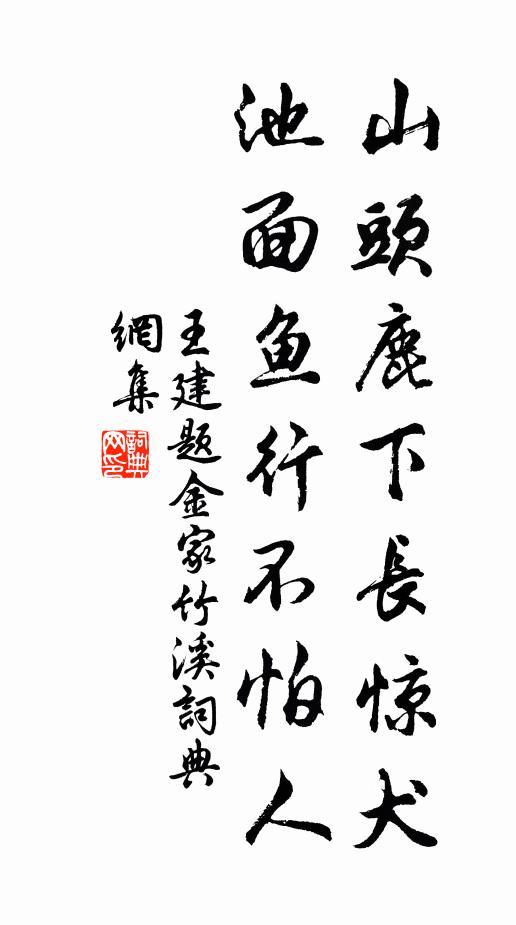 山頭鹿下長惊犬
池面鱼行不怕人
王建题金家竹溪詞典
網集
詞典
网印